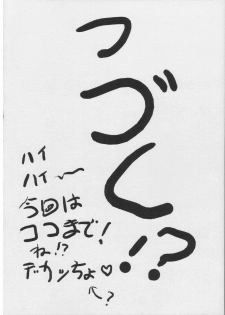 つづく!?
ハイ
ハイ〜
今回は
ココまで!
ね!?
デカッちょ♡
?